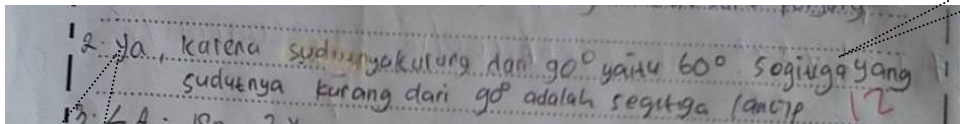 2. ya, karena sudutnyakurang dari 90° yaitu 60° segitiga yang
sudutnya kurang dari 90° adalah segitiga lancip 12
3. ∠A =